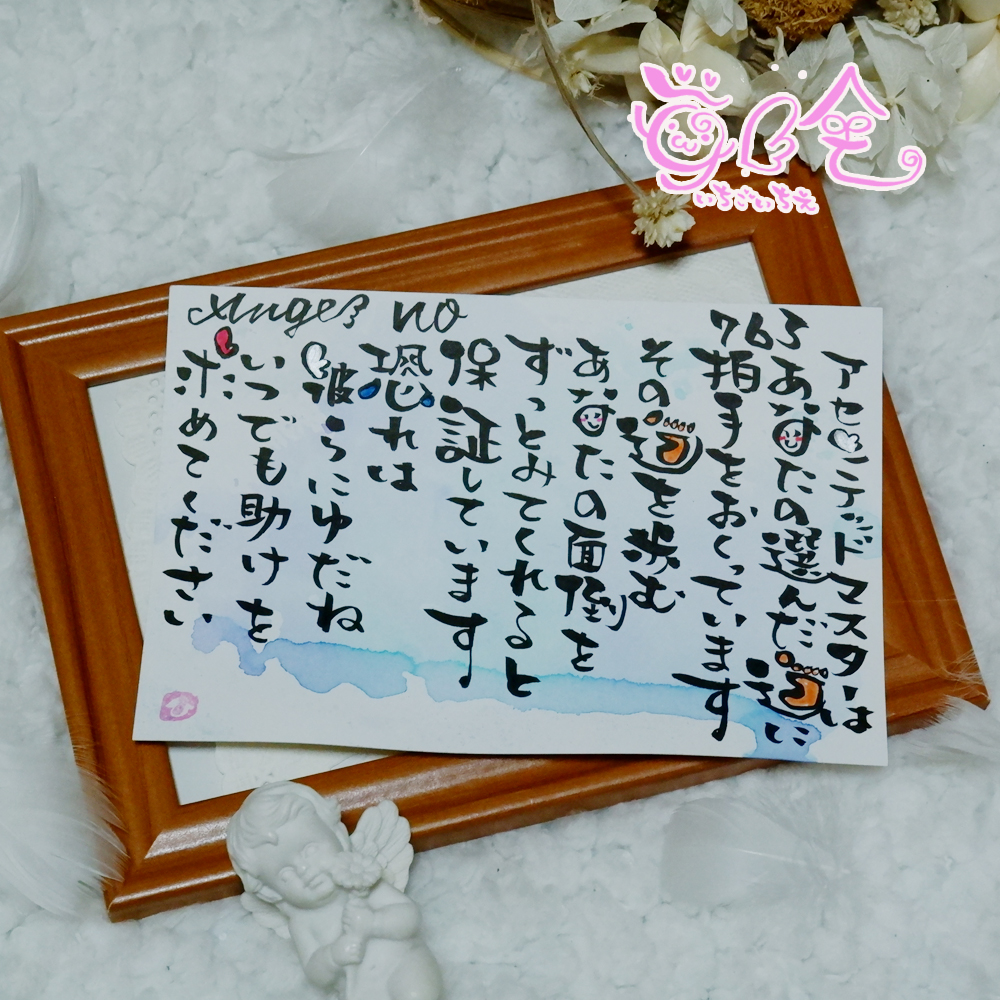 Angel no
763
アセンテッドマスターは
あなたの選んだ道に
拍手をおくっています
その道を歩む
あなたの面倒を
ずっとみてくれると
保証しています
恐れは
彼らにゆだね
いつでも助けを
求めてください
いちごいちえ